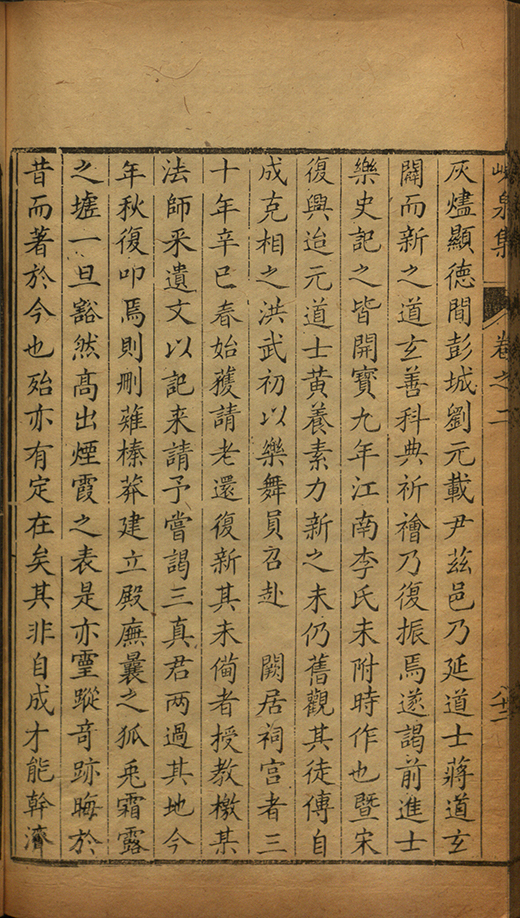 峴泉集 卷之二 八十二
灰燼顯德間彭城劉元載尹茲邑乃延道士蔣道玄
闢而新之道玄善科典祈禬乃復振焉遂謁前進士
樂史記之皆開寶九年江南李氏未附時作也暨宋
復興迨元道士黃養素力新之未仍舊觀其徒傅自
成克相之洪武初以樂舞員召赴 闕居祠宫者三
十年辛巳春始獲請老還復新其未備者授教檄某
法師采遺文以記来請予嘗謁三真君两過其地今
年秋復叩焉則刪薙榛莽建立殿廡曩之狐兎霜露
之墟一旦豁然髙出煙霞之表是亦靈蹤奇跡晦於
昔而著於今也殆亦有定在矣其非自成才能幹濟